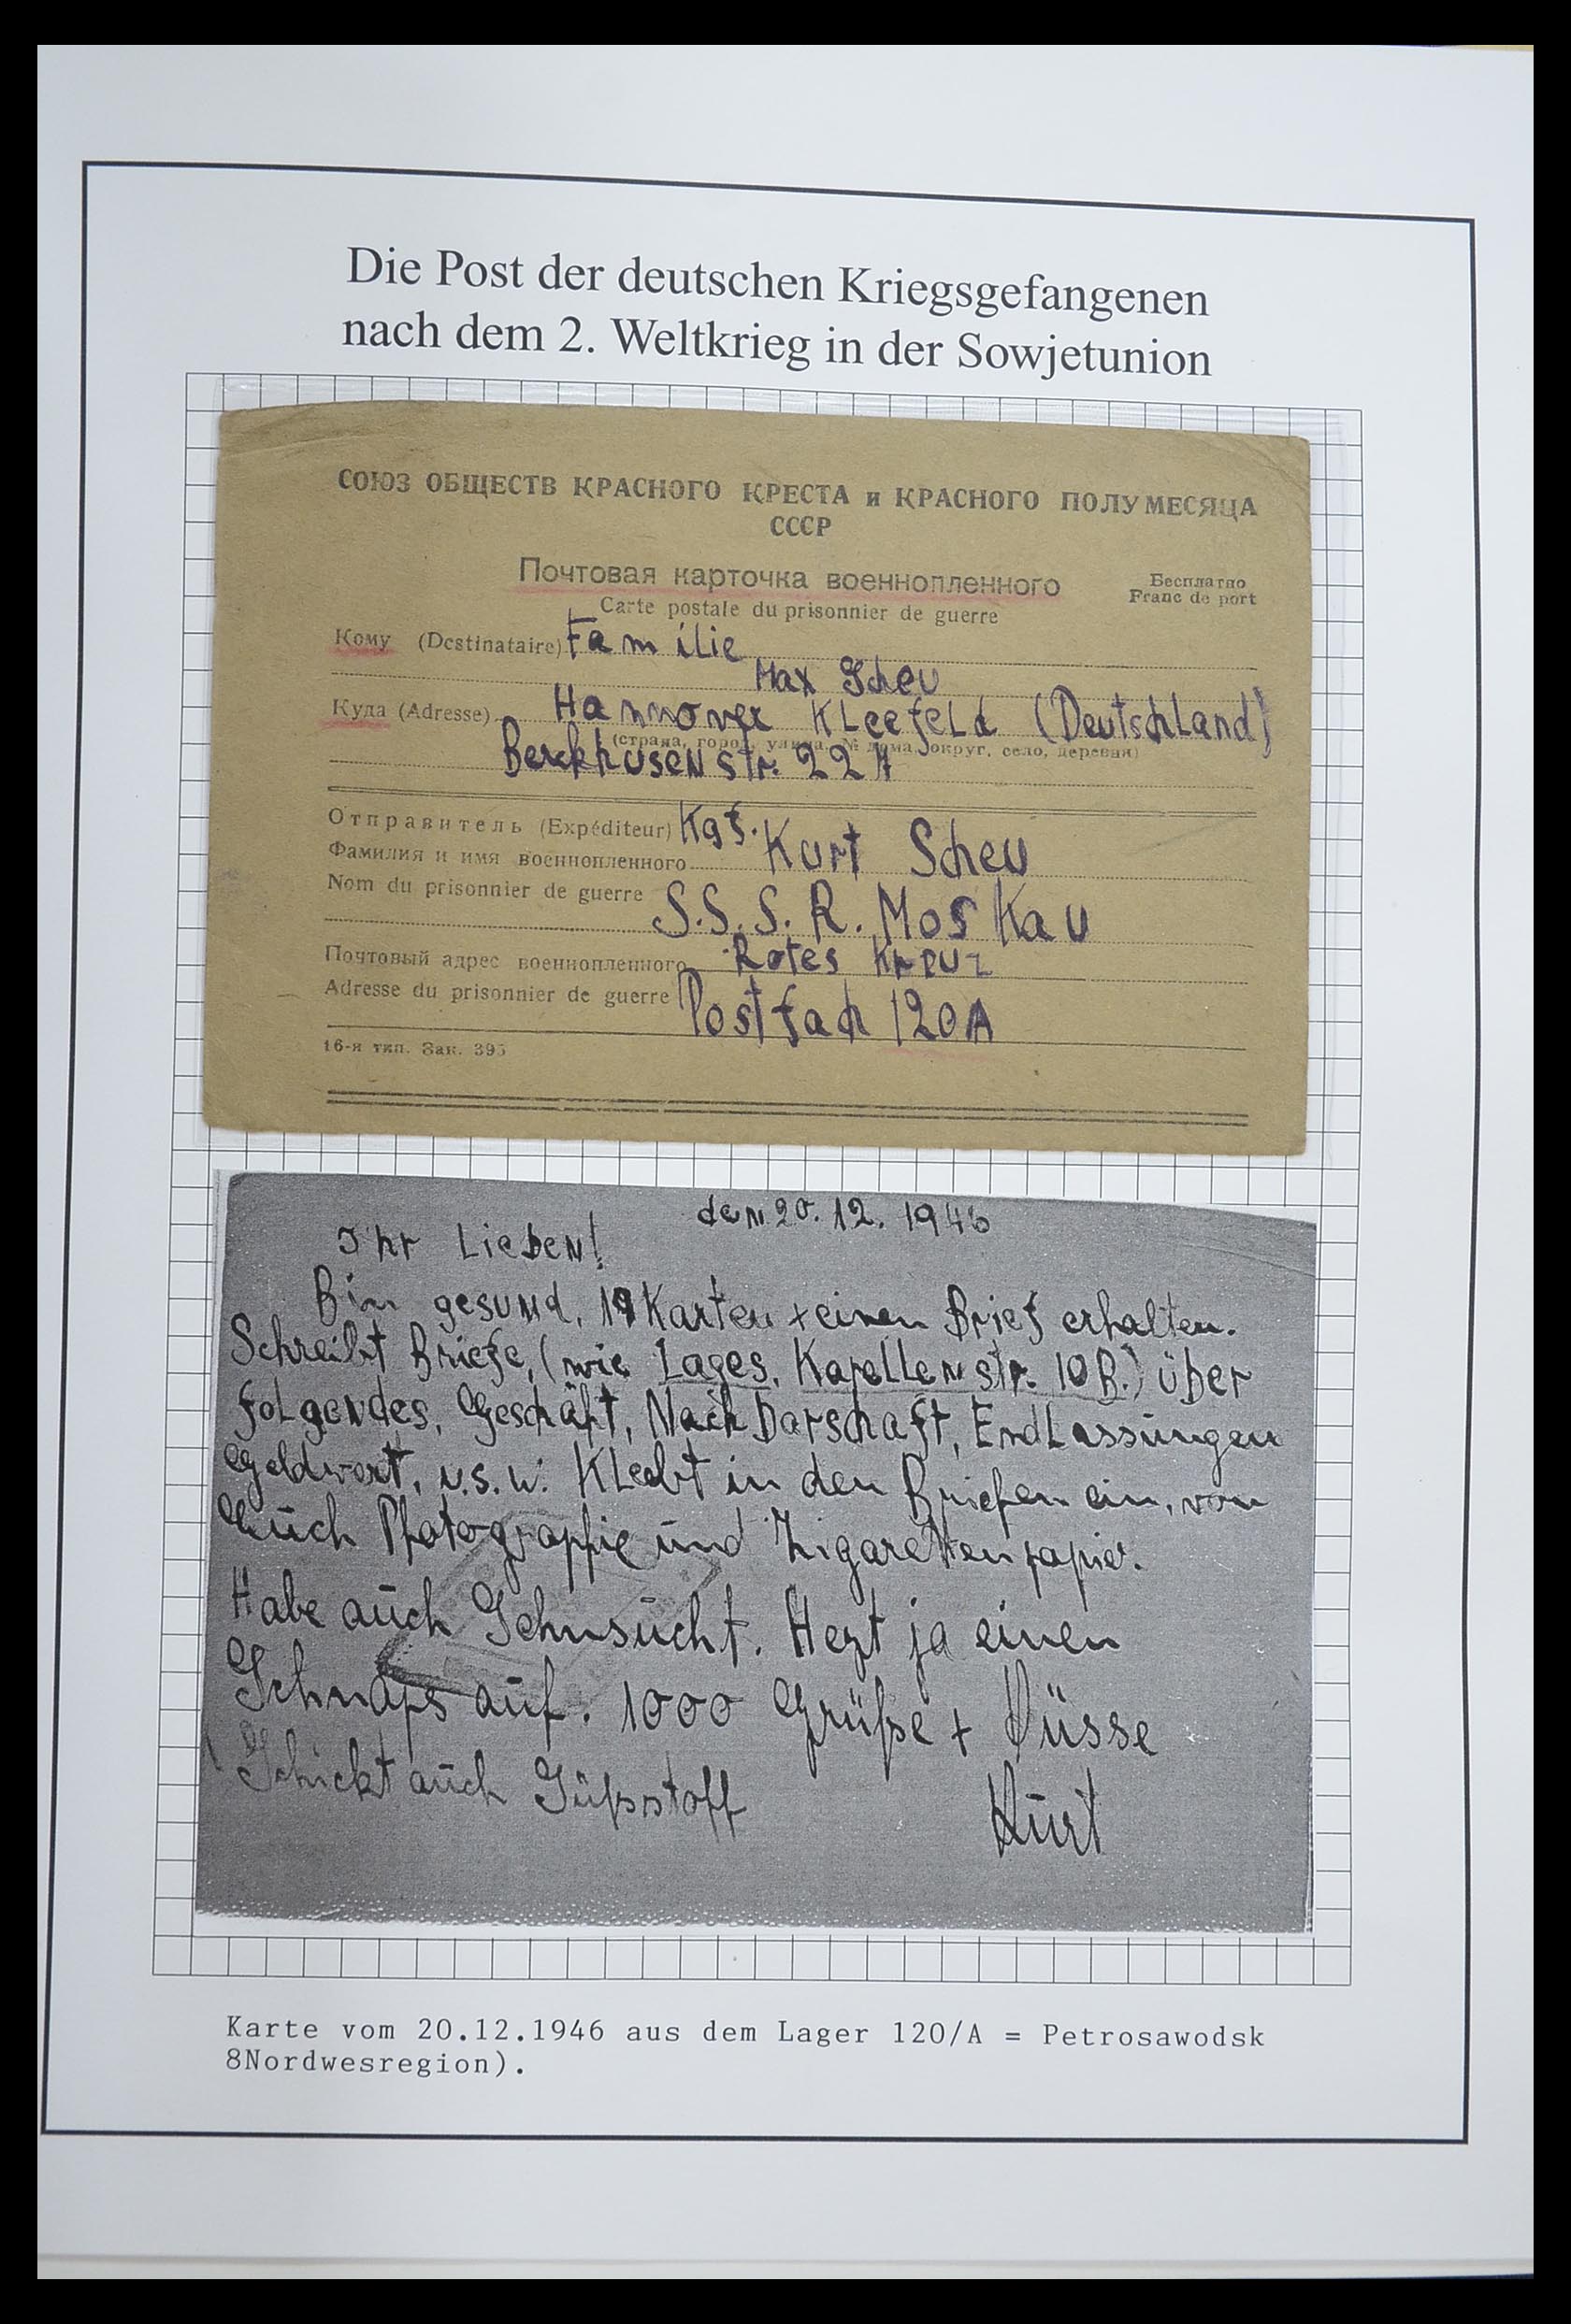 Die Post der deutschen Kriegsgefangenen
nach dem 2. Weltkrieg in der Sowjetunion
СОЮЗ ОБЩЕСТВ КРАСНОГО КРЕСТА и КРАСНОГО ПОЛУМЕСЯЦА
СССР
Почтовая карточка военнопленного
Бесплатно
Carte postale du prisonnier de guerre
Franc de port
Кому (Destinataire) Familie
Max Scheu
Куда (Adresse) Hannover Kleefeld (Deutschland)
(страна, город, улица, № дома, округ, село, деревня)
Berckhusenstr. 22A
Отправитель (Expéditeur) Kgf.
Фамилия и имя военнопленного Kurt Scheu
Nom du prisonnier de guerre
S.S.S.R. Moskau
Почтовый адрес военнопленного Rotes Kreuz
Adresse du prisonnier de guerre Postfach 120A
16-я тип. Зак. 395
den 20. 12. 1946
Ihr Lieben!
Bin gesund, 19 Karten + einen Brief erhalten.
Schreibt Briefe, (wie Lages, Kapellenstr. 10B.) über
folgendes, Geschäft, Nachbarschaft, Endlassungen
Geldwert, u.s.w. Klebt in den Briefen ein, von
Euch Photographie und Zigarettenpapier.
Habe auch Sehnsucht. Hebt ja einen
Schnaps auf. 1000 Grüße + Küsse
Schickt auch Süßstoff
Kurt
Karte vom 20.12.1946 aus dem Lager 120/A = Petrosawodsk
8Nordwesregion).